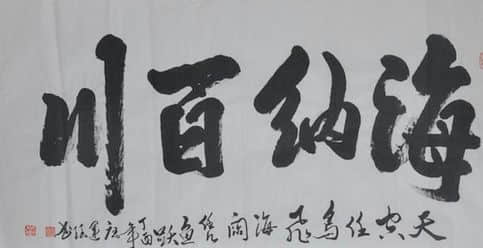 海纳百川
天空任鸟飞海阔凭鱼跃